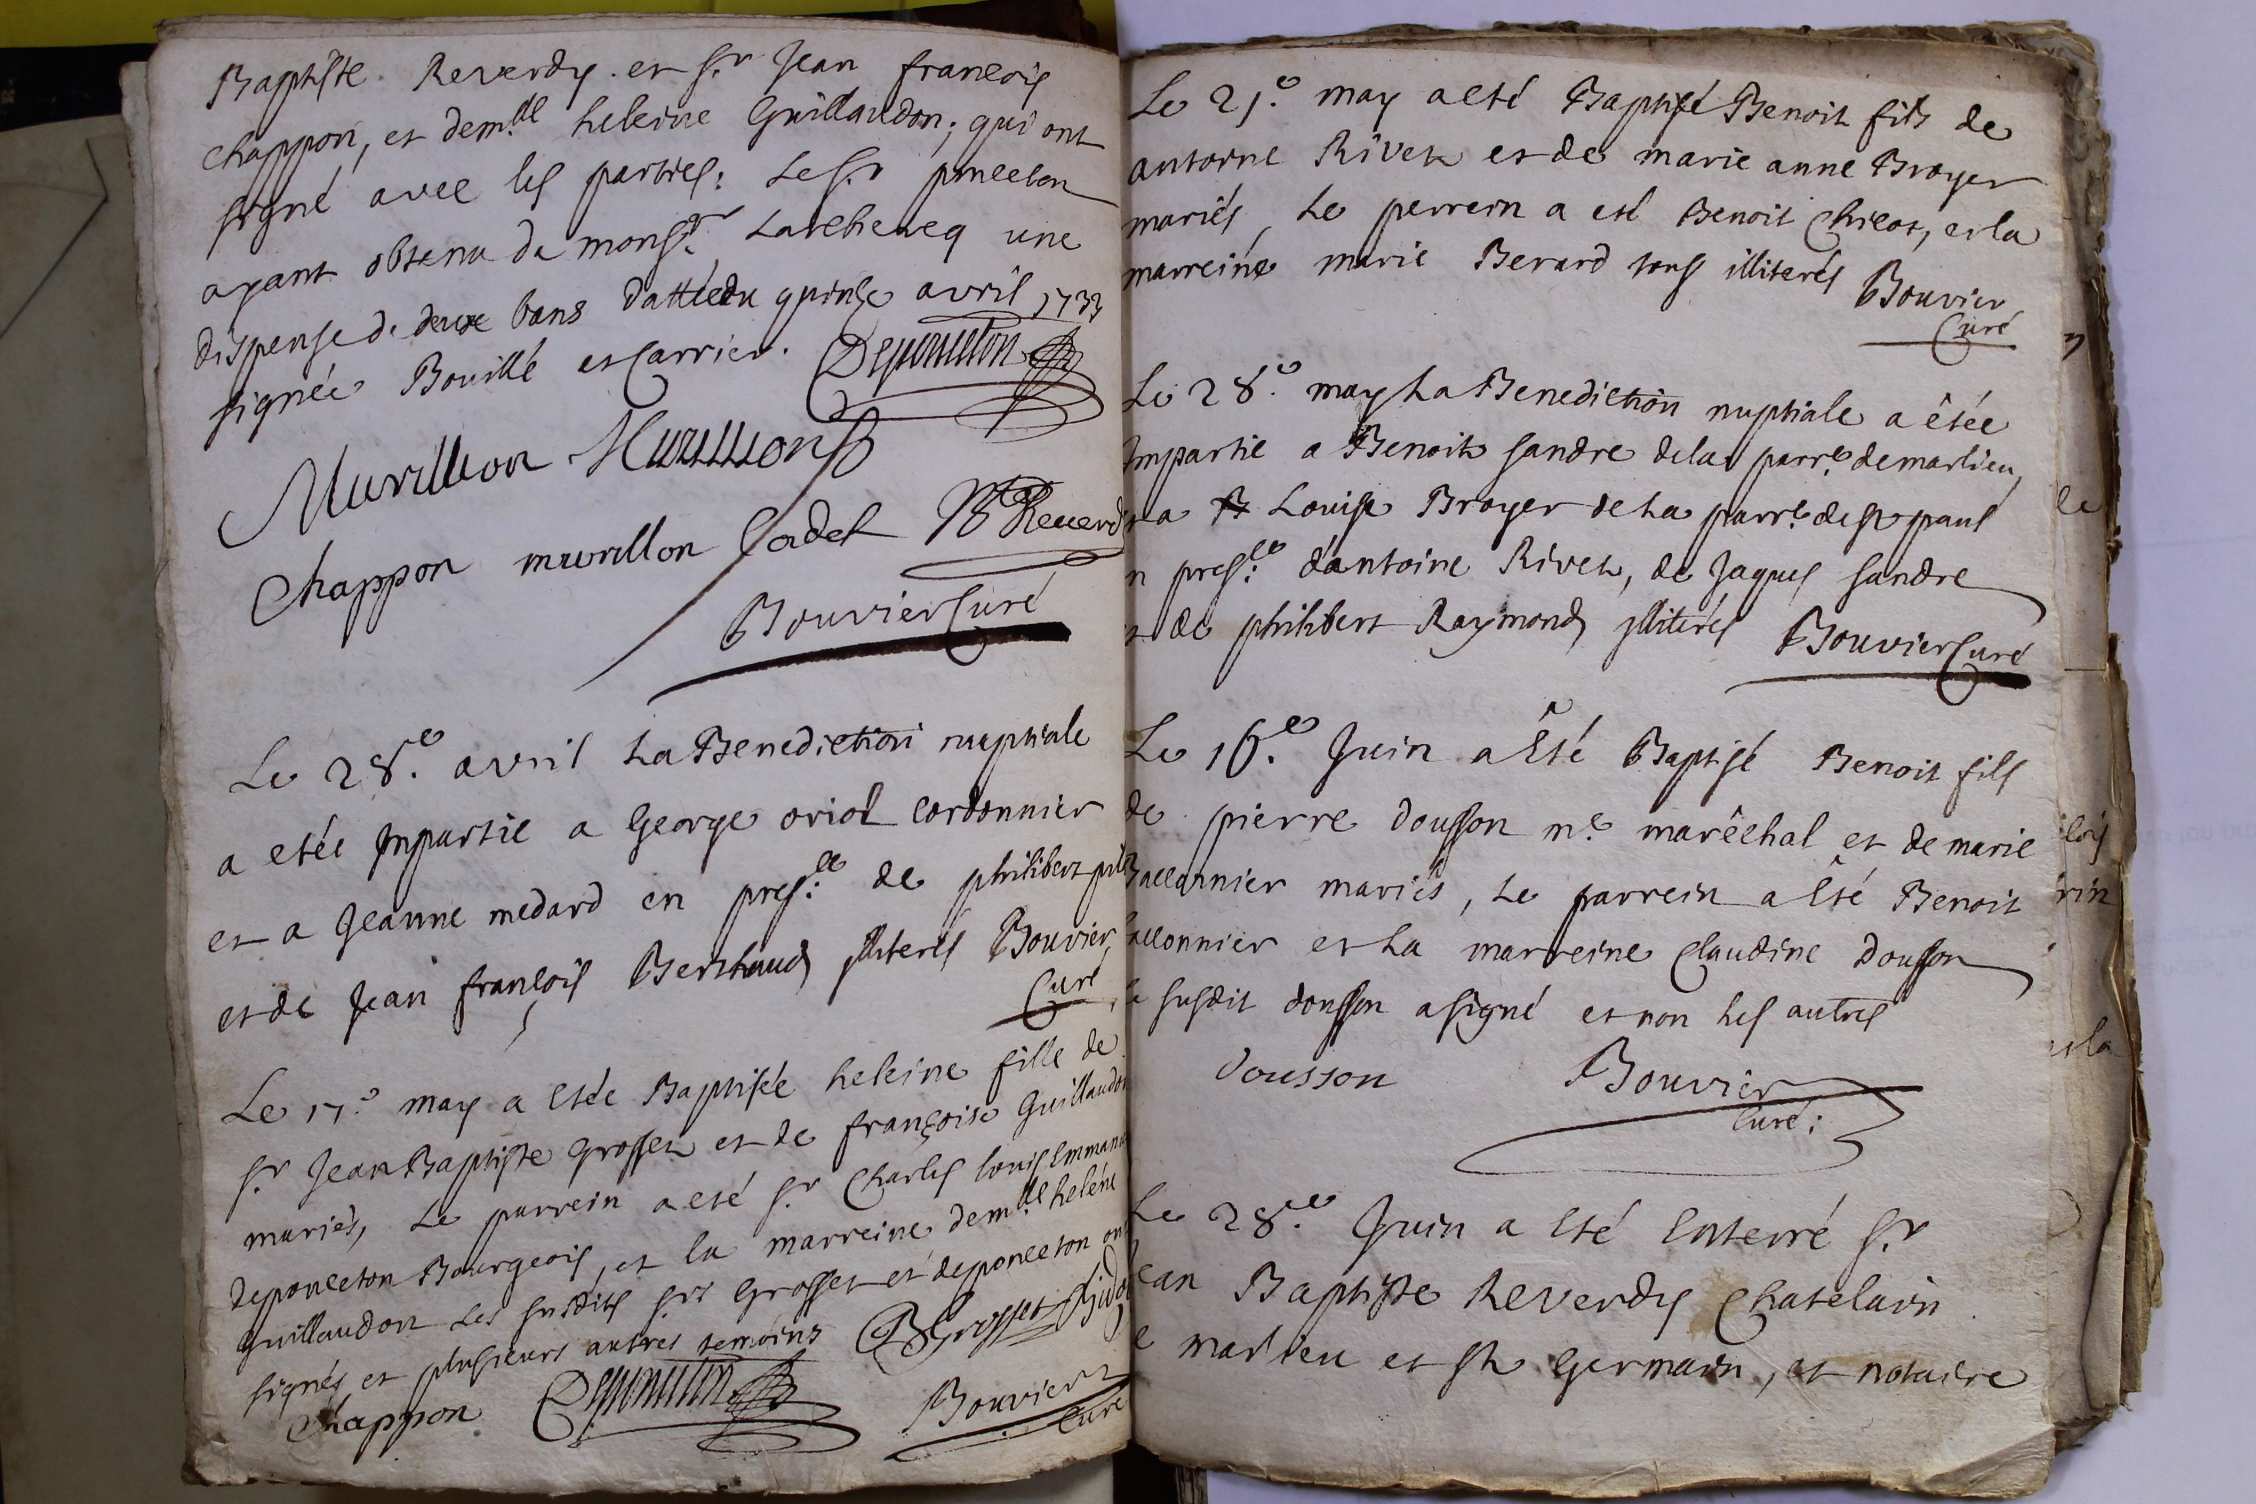 Baptiste Reverdy et Sr Jean francois
chappon, et demlle heleine Guillaudon; qui ont
signé avec les parties: Le Sr ponceton
ayant obtenu de monsgr Larchevecq une
dispense de deux bans dattée du quinze avril 1733
signée Bouillé et Carrier. Deponceton
Muvillion
Chappon muvillon Cadet B Reverd
Bouvier Curé
Le 28e. avril La Benediction nuptiale
a etée Impartie a George oriol Cordonnier
et a Jeanne medard en presce: de philibert
et de Jean françois Berthaud Illiterés Bouvier
Curé
Le 17e. may a Etée Baptisée heleine fille de
Sr Jean Baptiste Grosset et de françoise Guillaudon
mariés, Le parrein a eté Sr Charles Louis Emman
deponceton Bourgeois, et la marreine demlle heléne
Guillaudon Les susdits srs Grosset et deponceton on
signés et plusieurs autres temoins JB Grosset
Chappon Deponceton Bouvier
Curé
Le 21e. may a eté Baptisé Benoit fils de
antoine Rivet et de marie anne Broyer
mariés, Le perrein a esté Benoit Chicot, et la
marreine marie Berard tous illiterés Bouvier
Curé
Le 28e. may La Benediction nuptiale a êtée
Impartie a Benoit sandre de la parre. de marlieu,
et a Louise Broyer de La parre. de st paul
n presce: d'antoine Rivet, de Jaques sandre
et de philibert Raymond Illiterés Bouvier Curé
Le 16e. Juin a Eté Baptisé Benoit fils
de pierre dousson me marêchal et de marie
accornier mariés, Le parrein a Eté Benoit
acconnier et La marreine Claudine dousson
susdit dousson a signé et non Les autres
Dousson Bouvier
Curé:
Le 28e. Juin a Eté Enterré Sr
ean Baptiste Reverdy Chatelain
e marlieu et st Germain, et notaire